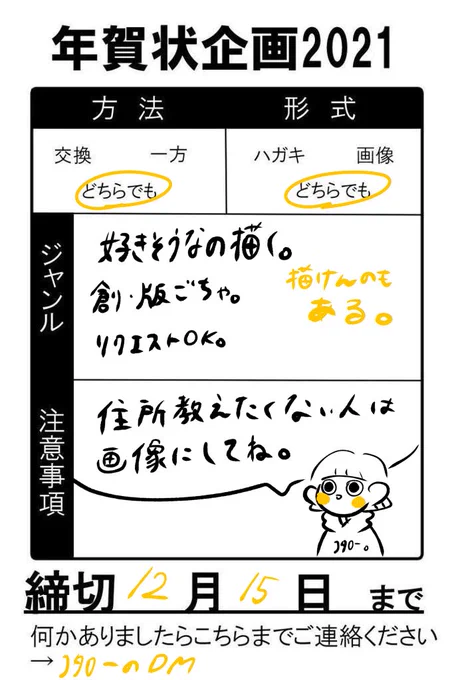 年賀状企画2021
方法 形式
交換 一方 ハガキ 画像
どちらでも どちらでも
ジャンル
好きそうなの描く。
創・版ごちゃ。
リクエストOK。
描けんのも
ある。
注意事項
住所教えたくない人は
画像にしてね。
締切 12月 15日 まで
何かありましたらこちらまでご連絡ください
→ のDM